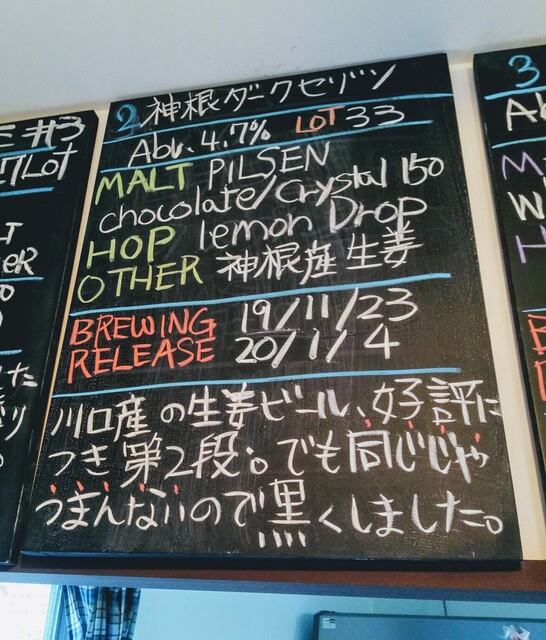 #3
17 Lot
2 神根ダークセゾン
Abv. 4.7% LOT 33
MALT PILSEN
chocolate/Crystal 150
HOP lemon Drop
OTHER 神根産生姜
BREWING 19/11/23
RELEASE 20/1/4
川口産の生姜ビール、好評に
つき第2段。でも同じじゃ
つまんないので黒くしました。
3